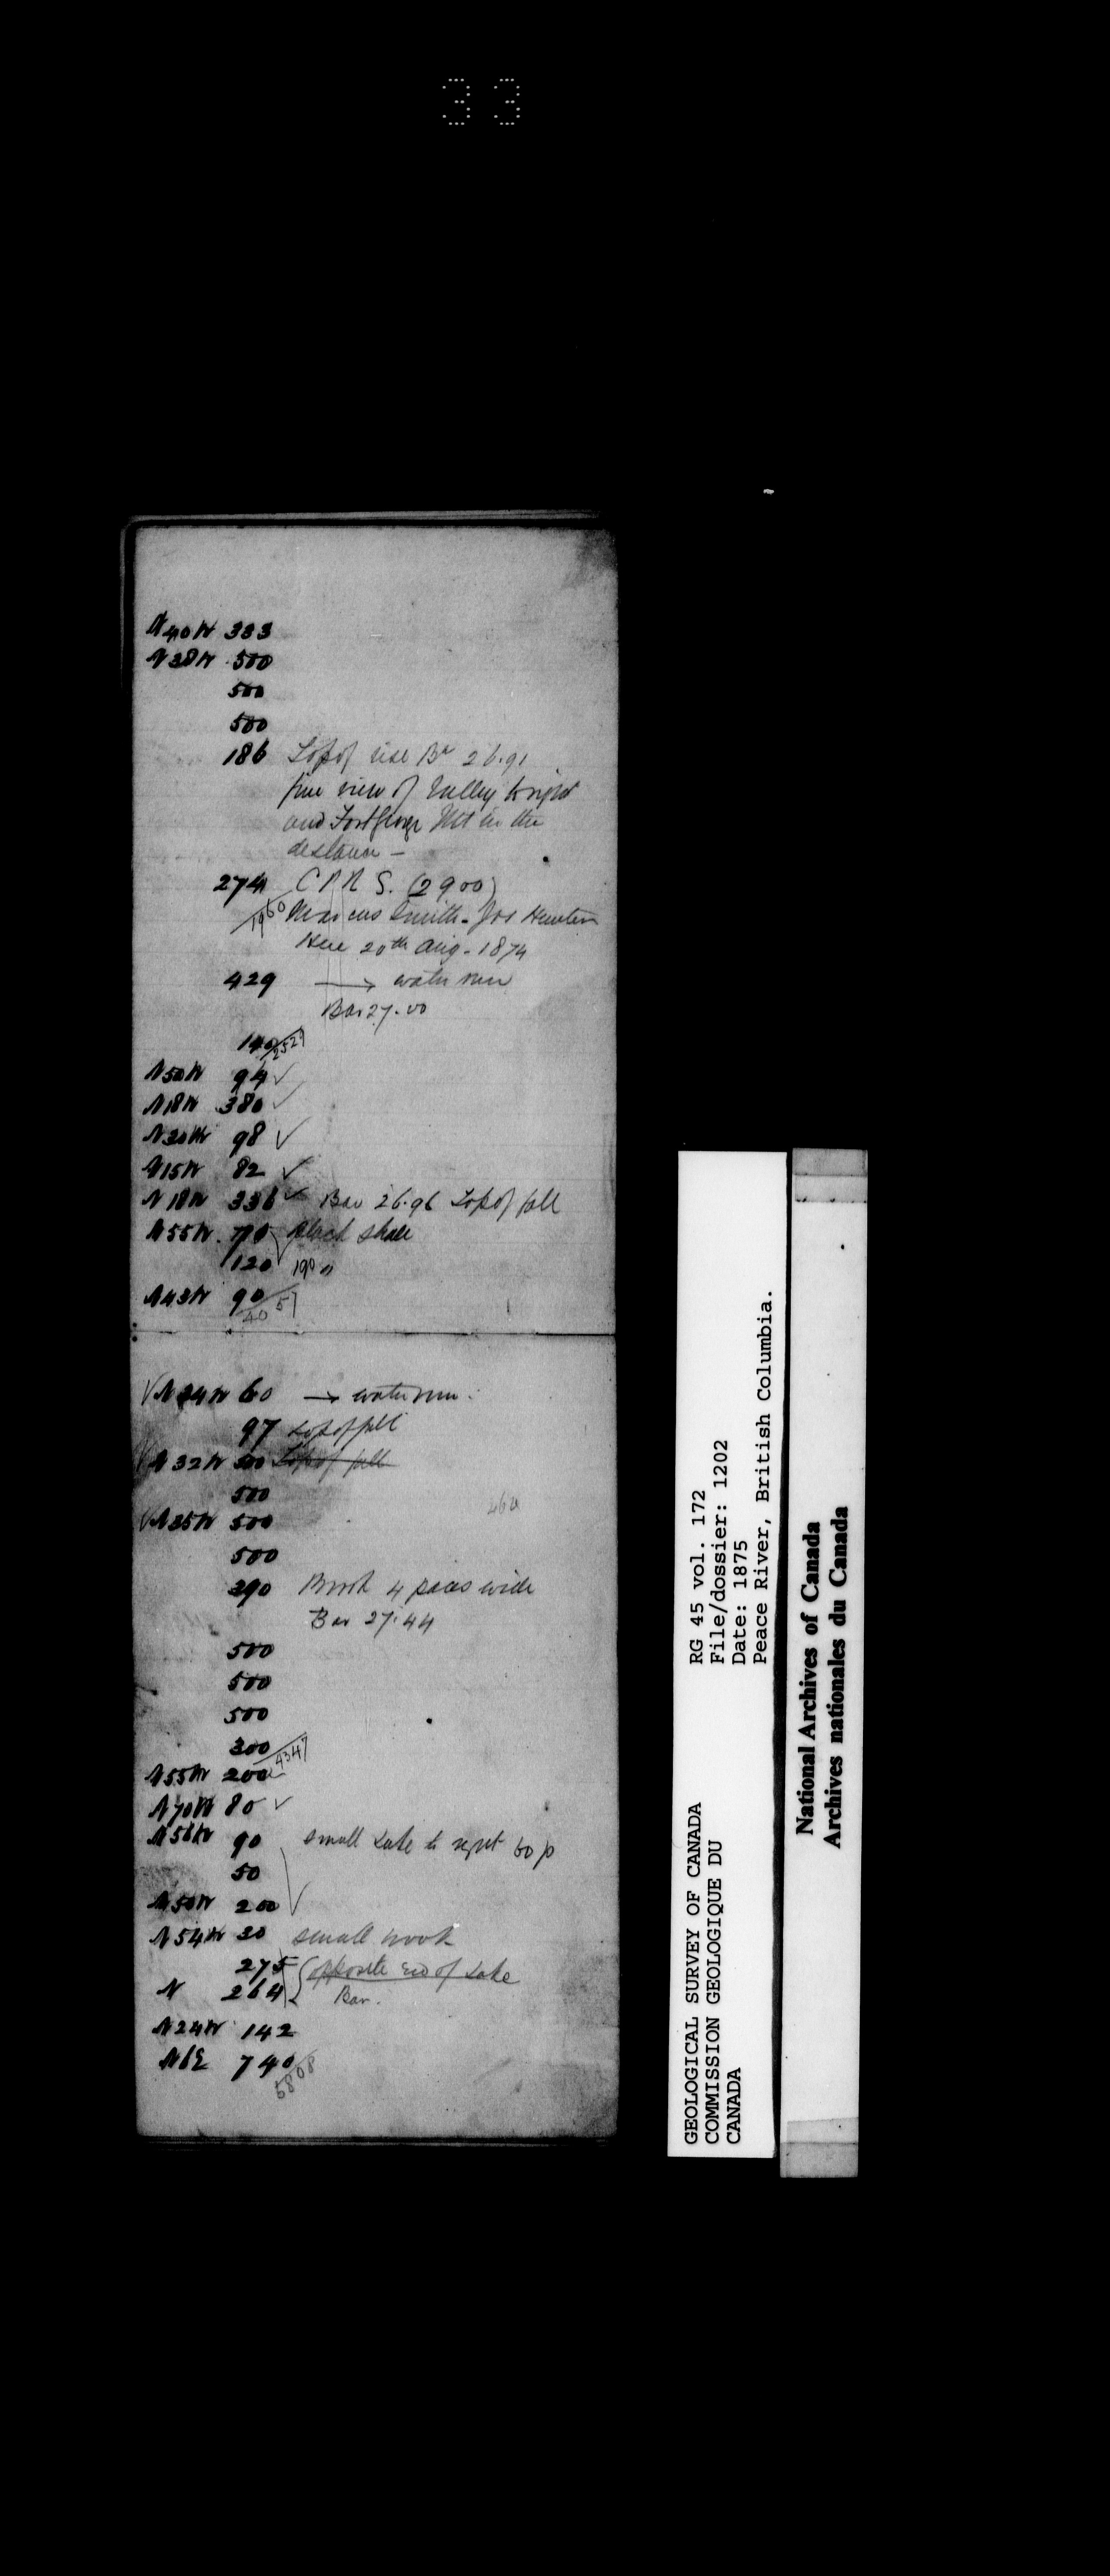 33
N 40 W 383
N 38 W 500
500
500
186 Top of rise Br 26.91
fine view of Valley to right
and Fort George Mt in the
distance —
274 C P R S. (2900)
1960 Marcus Smith - Jos Hunter
Here 20th Aug. 1874
429 → water run
Bar 27.00
140 2529
N 50 W 94 ✓
N 18 W 380 ✓
N 30 W 98 ✓
N 15 W 82 ✓
N 18 W 336 ✓ Bar 26.96 Top of fall
N 55 W 70 Black shale
120 190
N 43 W 90
4057
✓ N 34 W 60 → water run.
97 Top of fall
N 32 W 500 Top of fall
500
✓ N 35 W 500
500
390 Brook 4 paces wide
Bar 27.44
500
500
500
300 4347
N 55 W 200
N 70 W 80 ✓
N 58 W 90 small Lake to right 60 p
50
N 50 W 200
N 54 W 30 small brook
275 opposite end of Lake
N 264 Bar.
N 24 W 142
N 6 E 740
5808
GEOLOGICAL SURVEY OF CANADA
COMMISSION GEOLOGIQUE DU
CANADA
RG 45 vol. 172
File/dossier: 1202
Date: 1875
Peace River, British Columbia.
National Archives of Canada
Archives nationales du Canada